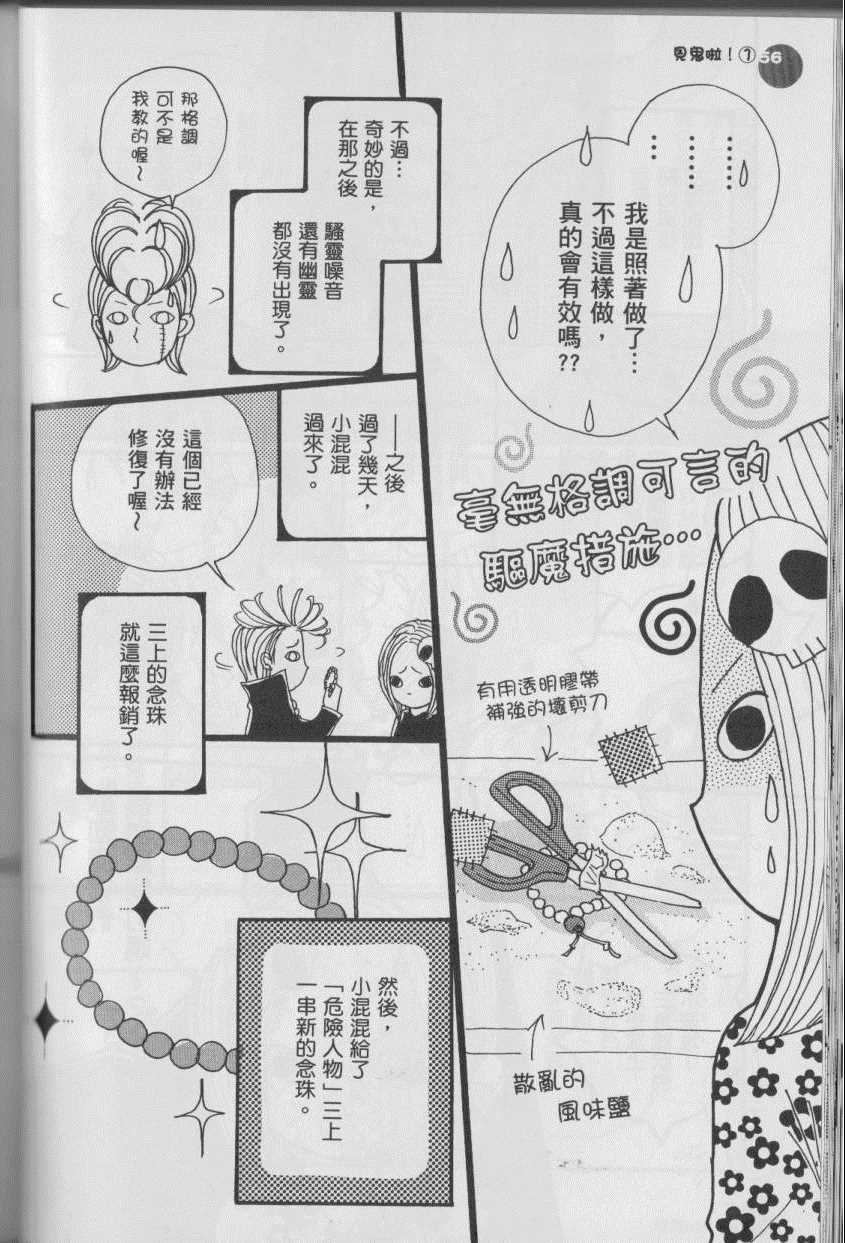 見鬼啦！① 56
……
……
…
我是照著做了…
不過這樣做，
真的會有效嗎??
毫無格調可言的
驅魔措施…
有用透明膠帶
補強的壞剪刀
散亂的
風味鹽
不過…
奇妙的是，
在那之後
騷靈噪音
還有幽靈
都沒有出現了。
那格調
可不是
我教的喔~
——之後
過了幾天，
小混混
過來了。
這個已經
沒有辦法
修復了喔~
三上的念珠
就這麼報銷了。
然後，
小混混給了
「危險人物」三上
一串新的念珠。